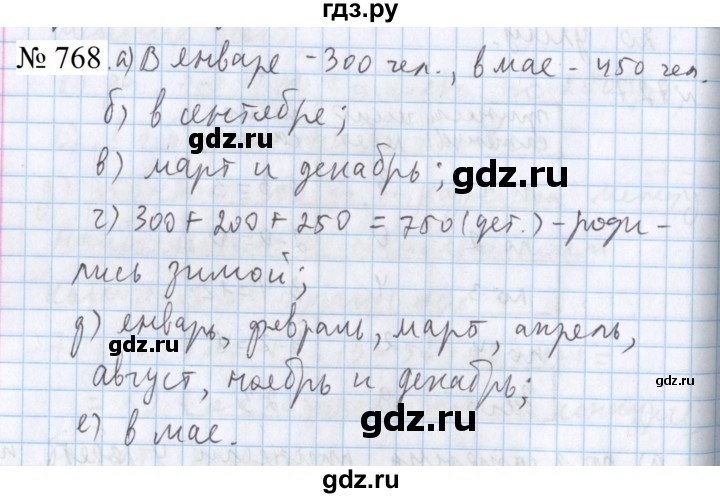 гдз.ру
№ 768 а) В январе - 300 чел., в мае - 450 чел.
б) в сентябре;
gdz.ru
gdz.ru
в) март и декабрь;
gdz.ru
г) 300 + 200 + 250 = 750 (дет.) - роди-
gdz.ru
лись зимой;
д) январь, февраль, март, апрель,
gdz.ru
август, ноябрь и декабрь;
gdz.ru
е) в мае.
gdz.ru
gdz.ru